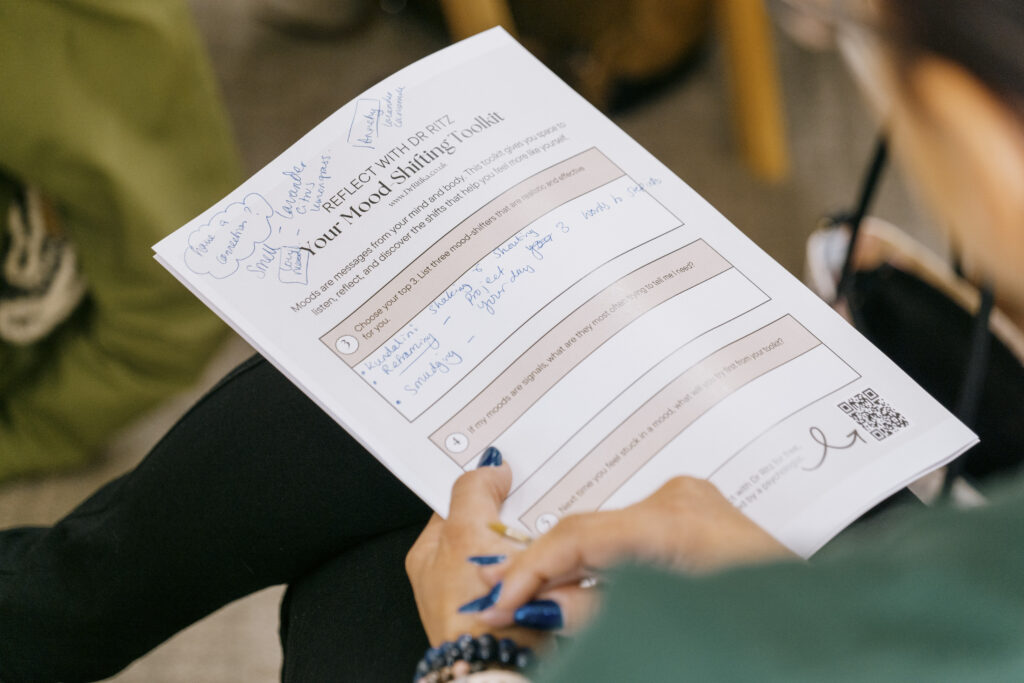 Anxiety
lavender
camomile
Have a
connection?
Smell - lavender
citrus
lemongrass
low
mood
REFLECT WITH DR RITZ
Your Mood Shifting Toolkit
www.DrRitz.co.uk
Moods are messages from your mind and body. This toolkit gives you space to
listen, reflect, and discover the shifts that help you feel more like yourself.
3 Choose your top 3. List three mood-shifters that are realistic and effective
for you.
• Kundalini shaking & shouting
• Reframing - Project 3 words to
your day
• Smudging -
4 If my moods are signals, what are they most often trying to tell me I need?
5 Next time you feel stuck in a mood, what will you try first from your toolkit?
with Dr Ritz for free,
by a psychologist.